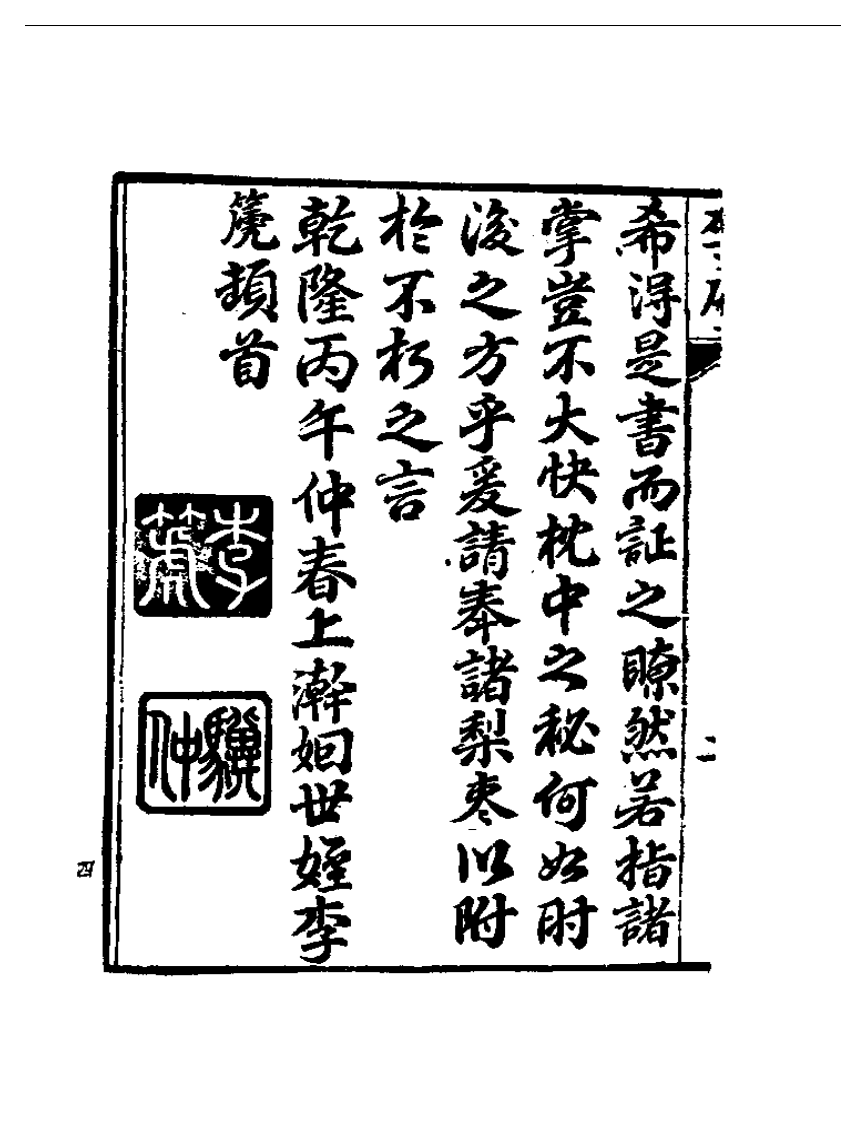 希得是書而証之瞭然若指諸
掌豈不大快枕中之秘何如肘
後之方乎爰請奉諸梨枣以附
於不朽之言
乾隆丙午仲春上澣姻世姪李
箎頓首
李
仲
四